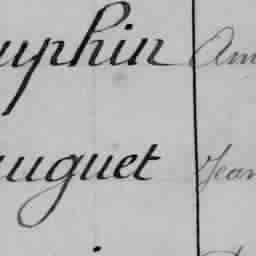 uphin Am
auguet Jean